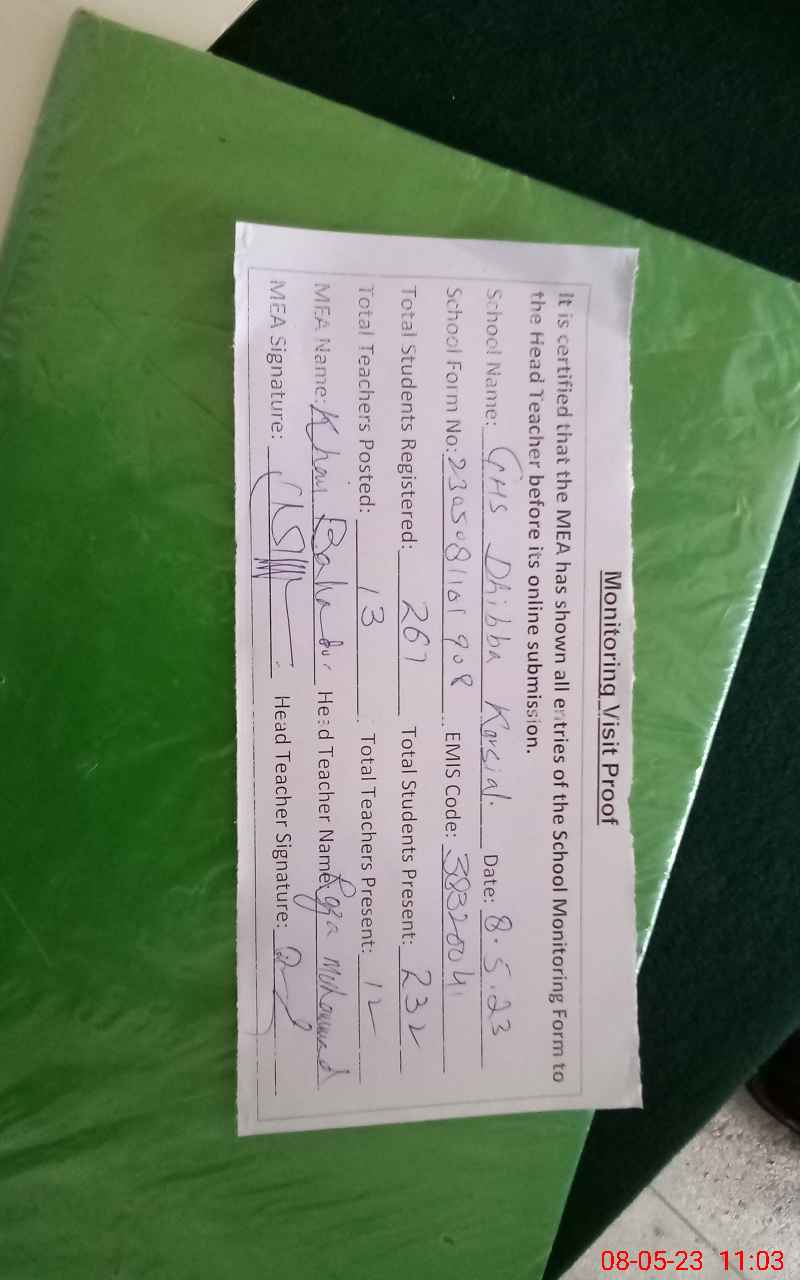 Monitoring Visit Proof
It is certified that the MEA has shown all entries of the School Monitoring Form to
the Head Teacher before its online submission.
School Name: GHS Dhibba Karsial. Date: 8.5.23
School Form No: 2305081101908 EMIS Code: 38320041
Total Students Registered: 267 Total Students Present: 232
Total Teachers Posted: 13 Total Teachers Present: 12
MEA Name: Khan Bahadur Head Teacher Name: Raza Mohammad
MEA Signature: Head Teacher Signature:
08-05-23 11:03